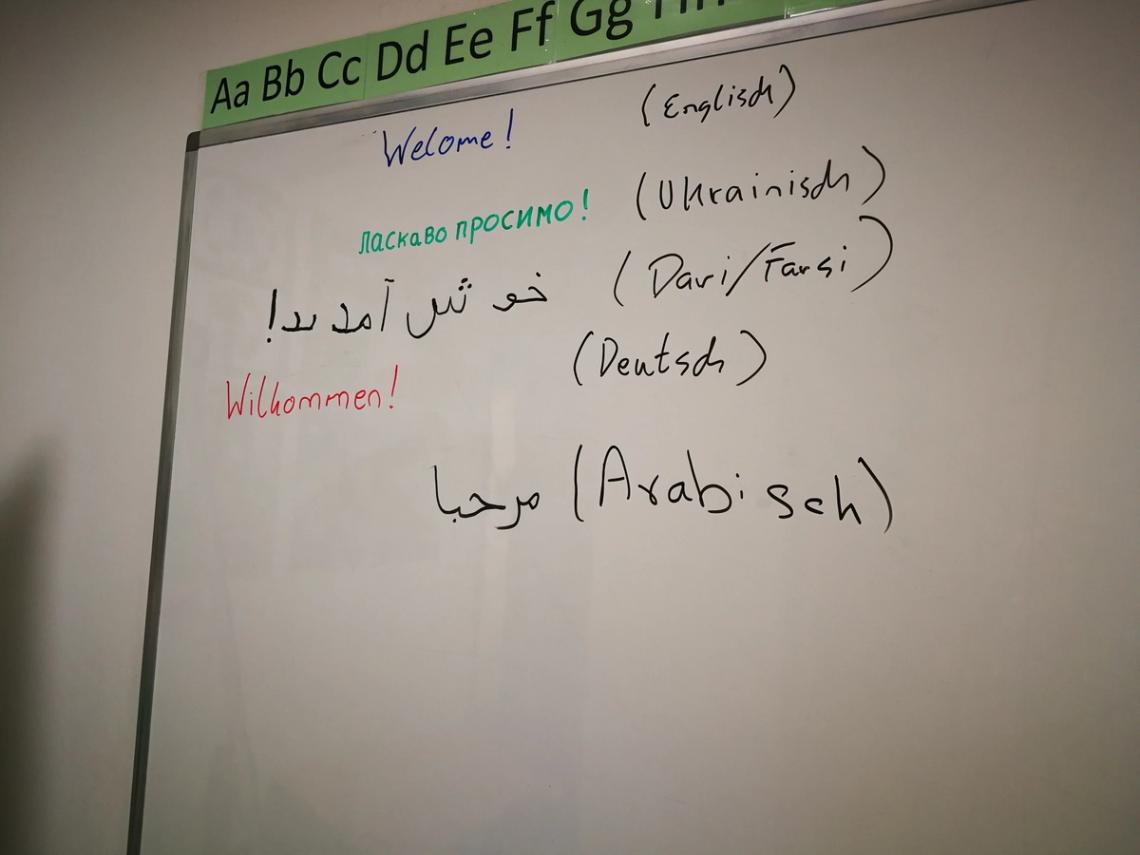 Aa Bb Cc Dd Ee Ff Gg
Welome! (Englisch)
Ласкаво просимо! (Ukrainisch)
خوش آمدید! (Dari/Farsi)
(Deutsch)
Wilkommen!
مرحبا (Arabisch)